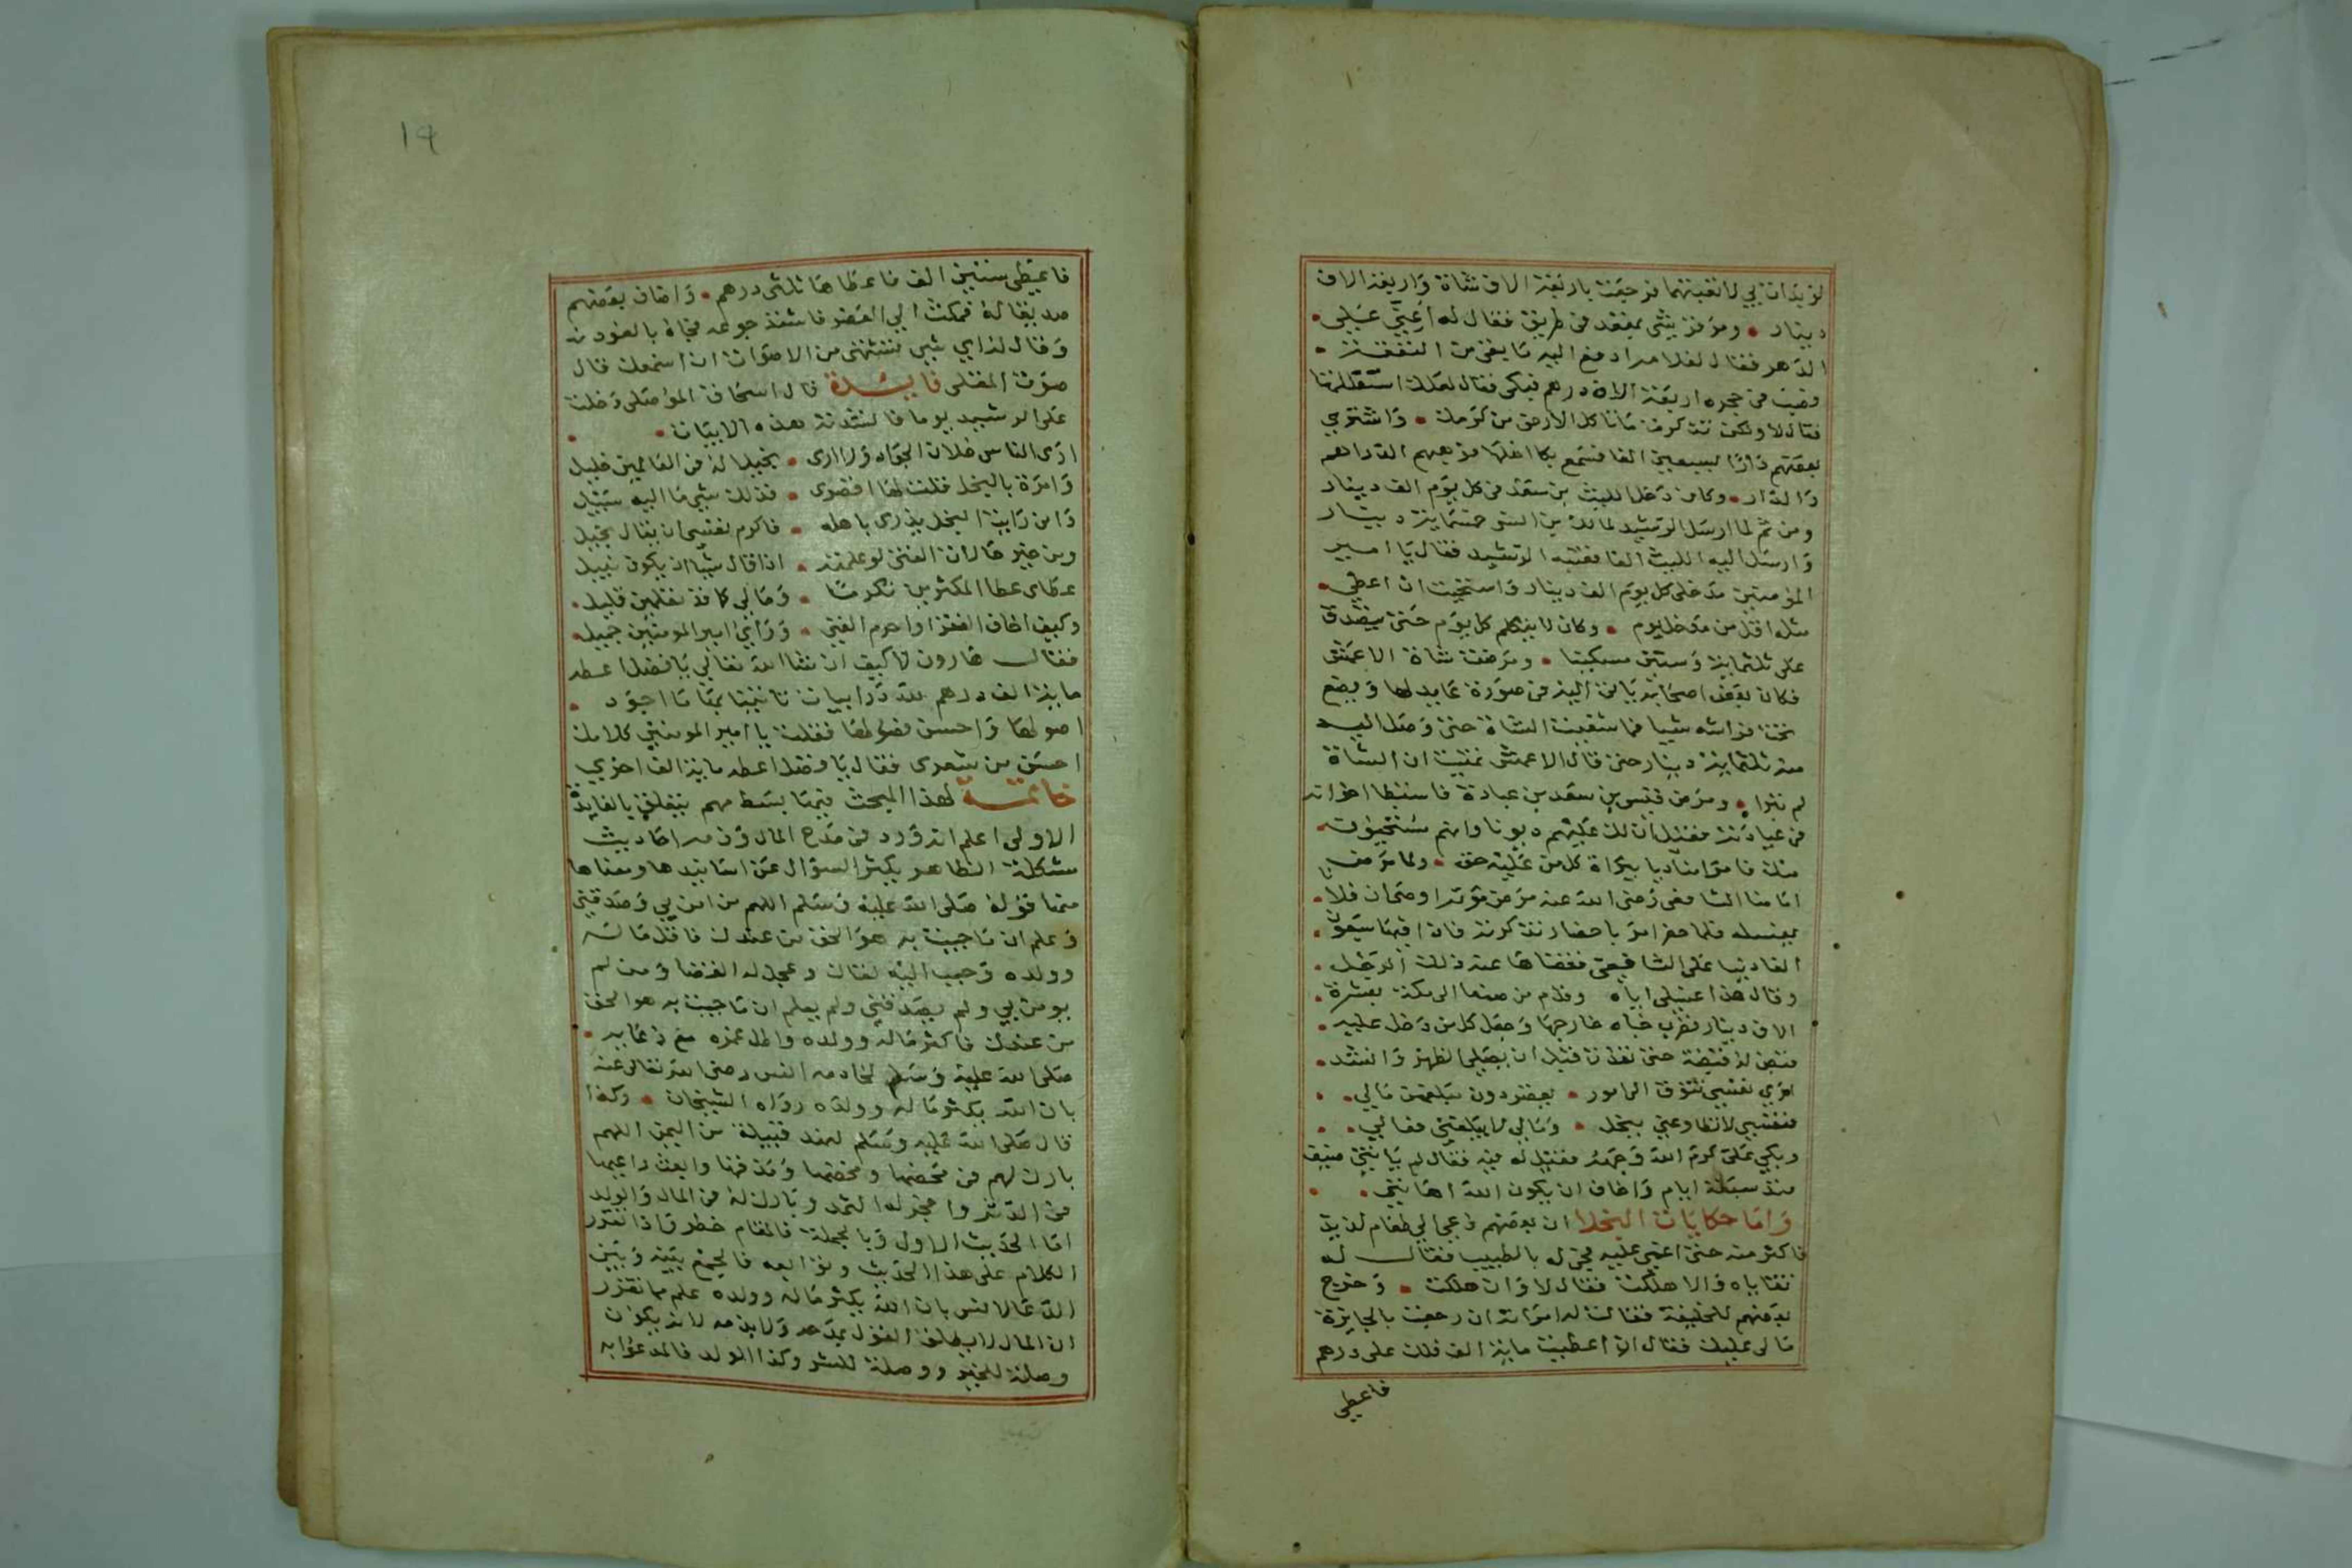 لو بداتا بي لاتعبتهما فرجعت باربعة الاف شاة واربعة الاف
دينار • ومر فر يشى بمقعد في طريق فقال له اعني علي •
الدهر فقال لغلامه ادفع اليه ما بقى من النفقة •
فصب في حجره اربعة الاف درهم فبكى فقال لعلك استقللتها
فقال لا ولكن تذكرت ما تاكل الارض من كرمك • واشترى
بعضهم دارا بسبعين الفا فسمع بكا اهلها فوهبهم الدراهم
والدار • وكان دخل الليث بن سعد في كل يوم الف دينار
ومن ثم لما ارسل الرشيد لمالك بن انس خمسماية دينار
وارسل اليه الليث الفا فعتبه الرشيد فقال يا امير
المومنين مدخلى كل يوم الف دينار واستحيت ان اعطي •
مثله اقل من مدخل يوم • وكان لا يتكلم كل يوم حتى يتصدق
على ثلثماية وستين مسكينا • ومرضت شاة الاعمش
فكان بعض اصحابه ياتى اليه في صورة عايد لها ويضع
تحت فراشه شيا فما شفيت الشاة حتى وصل اليه
منه ثلثماية دينار حتى قال الاعمش تمنيت ان الشاة
لم تبرا • ومرض قيس بن سعد بن عبادة فاستبطا اخوانه
في عيادته فقيل ان لك عليهم ديونا وانهم يستحيون •
منك فامر مناديا ببراة كل من عليه حق • ولما مرض
امامنا الشافعي رضى الله عنه مرض موته اوصى ان فلانا •
يغسله فلما حضر امر باحضار تذكرته فاذا فيها سبعون •
الفا دينا على الشافعي فقضاها عنه ذلك الرجل •
وقال هذا غسلى اياه وقدم من صنعا الى مكة بعشرة •
الاف دينار فضرب خباه خارجها وجعل كل من دخل عليه •
قبض له قبضة حتى نفذت قبل ان يصلى الظهر وانشد •
ارى نفسي تتوق الى امور • يقصر دون مبلغهن مالي •
فنفسي لا تطاوعني ببخل • ومالي لا يبلغني فعالي •
وبكى على كرم الله وجهه فقيل له فيه فقال لم ياتني ضيف
منذ سبعة ايام واخاف ان يكون الله اهانني •
واما حكايات البخلا ان بعضهم دعى الي طعام لذيذ
فاكثر منه حتى اغمي عليه فجى له بالطبيب فقال له
تقاياه والا هلكت فقال لا وان هلكت • وخرج
بعضهم للخليفة فقالت له امراته ان رجعت بالجايزة
مالى عليك فقال ان اعطيت ماية الف فلك على درهم
فاعطى
14
فاعطى ستين الف فاعطاها ثلثى درهم • واضاف بعضهم
صديقا له فمكث الي العصر فاشتد جوعه فجاه بالعود
وقال له اي شى تشتهى من الاصوات ان اسمعك قال
صوت المقلى فايدة قال اسحاق الموصلى دخلت
على الرشيد يوما فانشدته هذه الابيات •
ارى الناس خلان الجواد ولا ارى • بخيلا له في العالمين خليل
وامرة بالبخل قلت لها اقصرى • فذلك شي ما اليه سبيل
وانى رايت البخل يزرى باهله • فاكرم نفسى ان يقال بخيل
ومن خير حالات الفتى لو علمته • اذا قال شيا ان يكون ينيل
عطاى عطا المكثرين تكرما • ومالى كما قد تعلمين قليل •
وكيف اخاف الفقر او احرم الغنى • وراي امير المومنين جميل •
فقال هارون لا كيف ان شا الله تعالى يا فضل اعطه
ماية الف درهم لله در ابيات تاتينا بها ما اجود •
اصولها واحسن فصولها فقلت يا امير المومنين كلامك
احسن من شعرى فقال يا فضل اعطه ماية الف اخري
خاتمة لهذا المبحث فيما بسط مهم يتعلق بالفايدة
الاولى اعلم انه ورد في مدح المال وذمه احاديث
مشكلة الظاهر يكثر السؤال عن اسانيدها ومعناها
منها قوله صلى الله عليه وسلم اللهم من امن بي وصدقني
وعلم ان ما جيت به هو الحق من عندك فاقل ماله
وولده وحبب اليه لقاك وعجل له القضا ومن لم
يومن بي ولم يصدقني ولم يعلم ان ما جيت به هو الحق
من عندك فاكثر ماله وولده واطل عمره مع دعايه •
صلى الله عليه وسلم لخادمه انس رضى الله تعالى عنه
بان الله يكثر ماله وولده رواه الشيخان • وكذا
قال صلى الله عليه وسلم لهند قبيلة من اليمن اللهم
بارك لهم في محضها ومخضها ومذقها وابعث راعيها
في الدثر وافجر له الثمد وبارك له في المال والولد
اما الحديث الاول وبالجملة فالمقام خطر واذا تقرر
الكلام على هذا الحديث وتوابعه فالجمع بينه وبين
الدعا لانس بان الله يكثر ماله وولده علم مما تقرر
ان المال لا يطلق القول بمدحه ولا بذمه لانه يكون
وصلة للخير ووصلة للشر وكذا الولد فالمدعو به